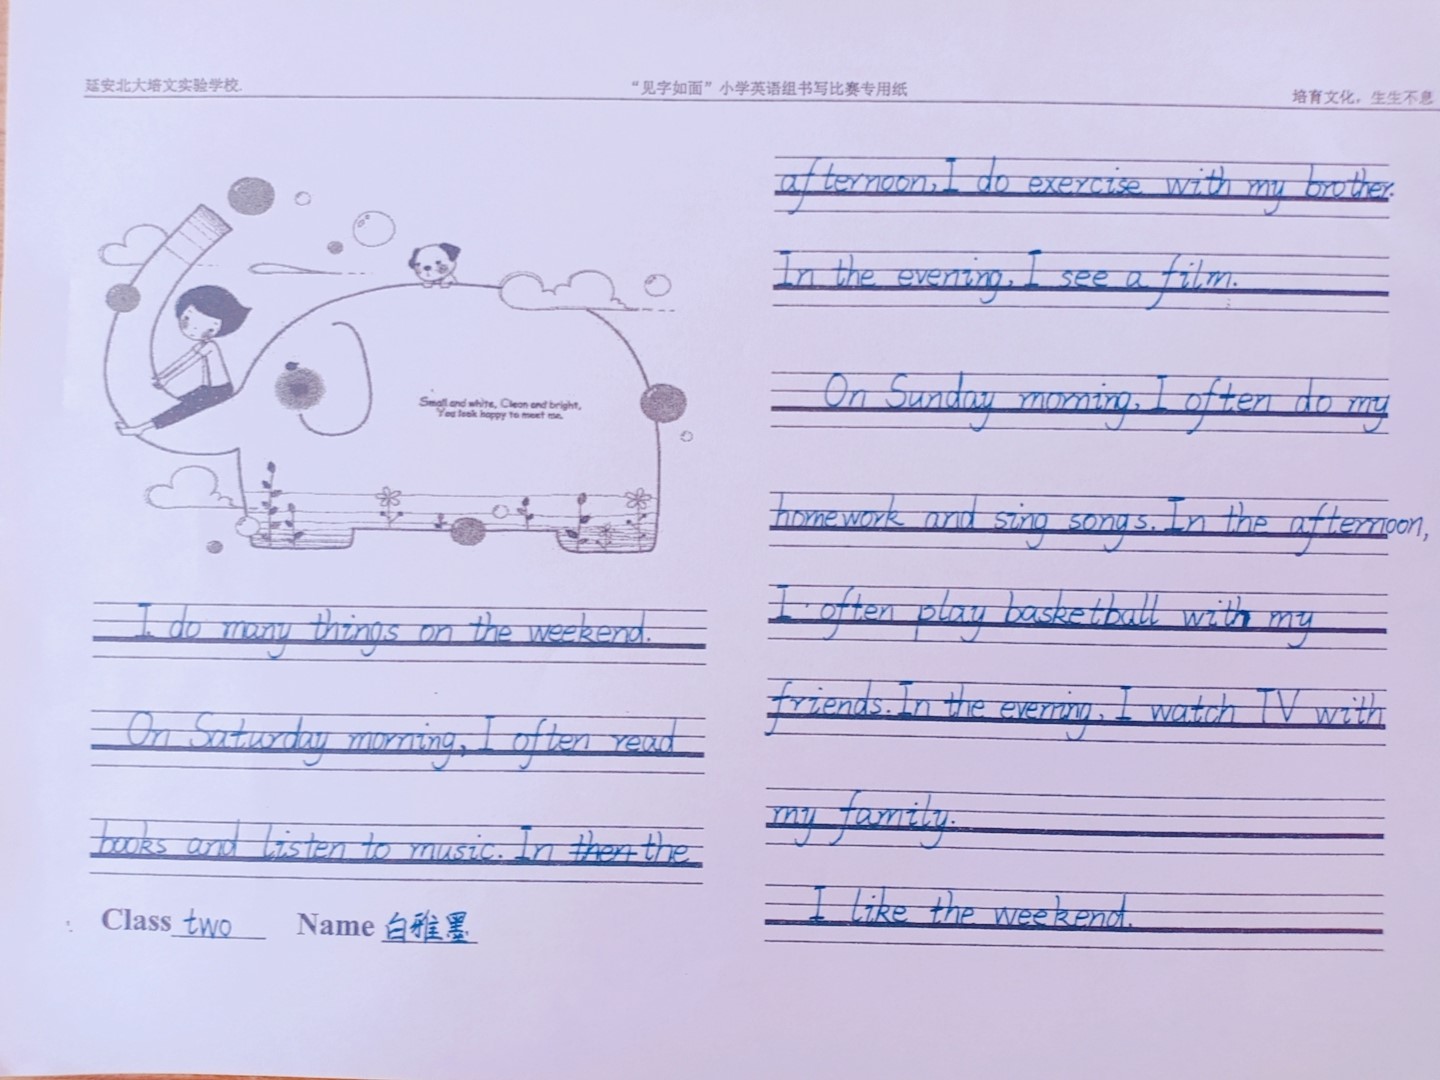 延安北大培文实验学校.
“见字如面”小学英语组书写比赛专用纸
培育文化，生生不息
Small and white, Clean and bright,
You look happy to meet me.
I do many things on the weekend.
On Saturday morning, I often read
books and listen to music. In then the
Class two Name 白雅墨
afternoon, I do exercise with my brother.
In the evening, I see a film.
On Sunday morning, I often do my
homework and sing songs. In the afternoon,
I often play basketball with my
friends. In the evening, I watch TV with
my family.
I like the weekend.